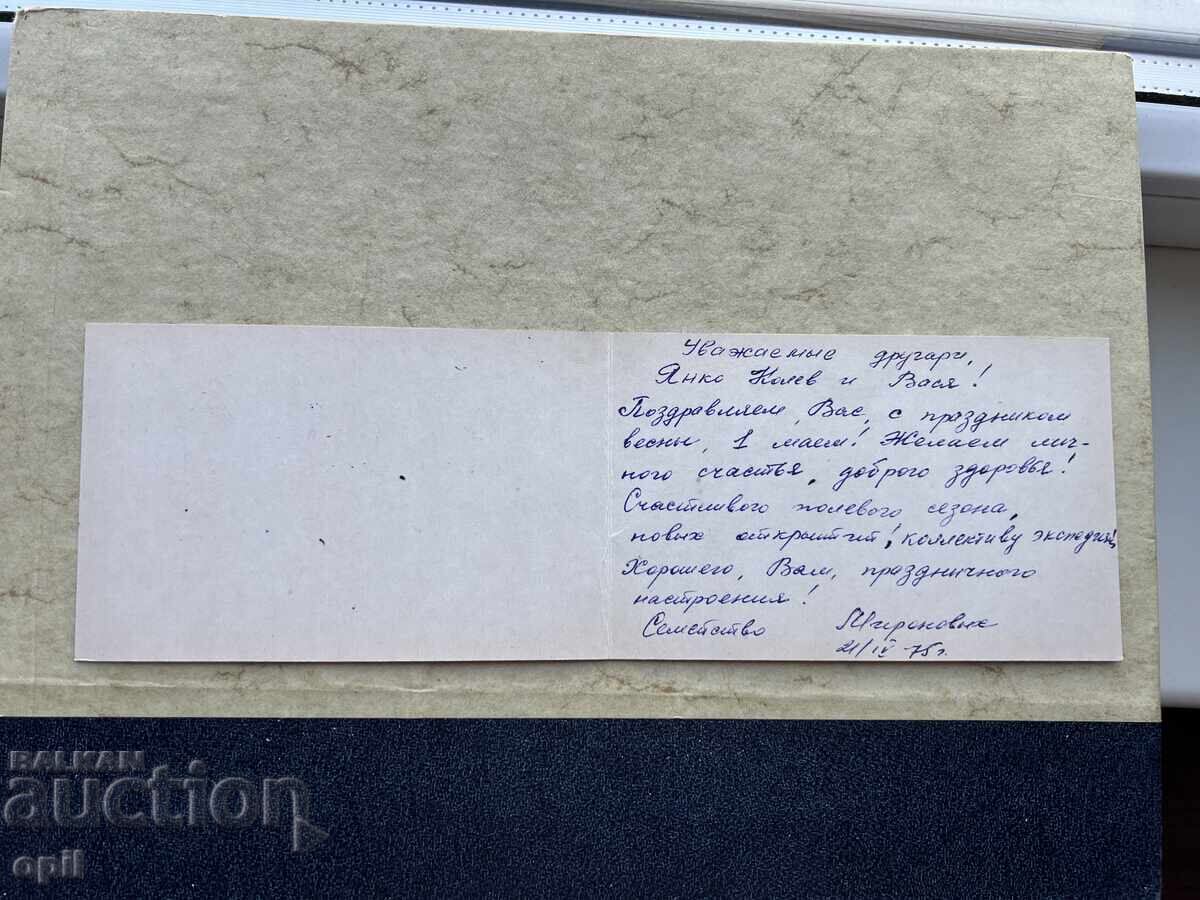 Уважаемые другари,
Янко Колев и Вася!
Поздравляем, Вас, с праздником
весны, 1 маем! Желаем лич-
ного счастья, доброго здоровья!
Счастливого полевого сезона,
новых открытий, коллективу экспедиции!
Хорошего, Вам, праздничного
настроения!
Семейство Мироновых
21/IV 75 г.
BALKAN
auction
opil